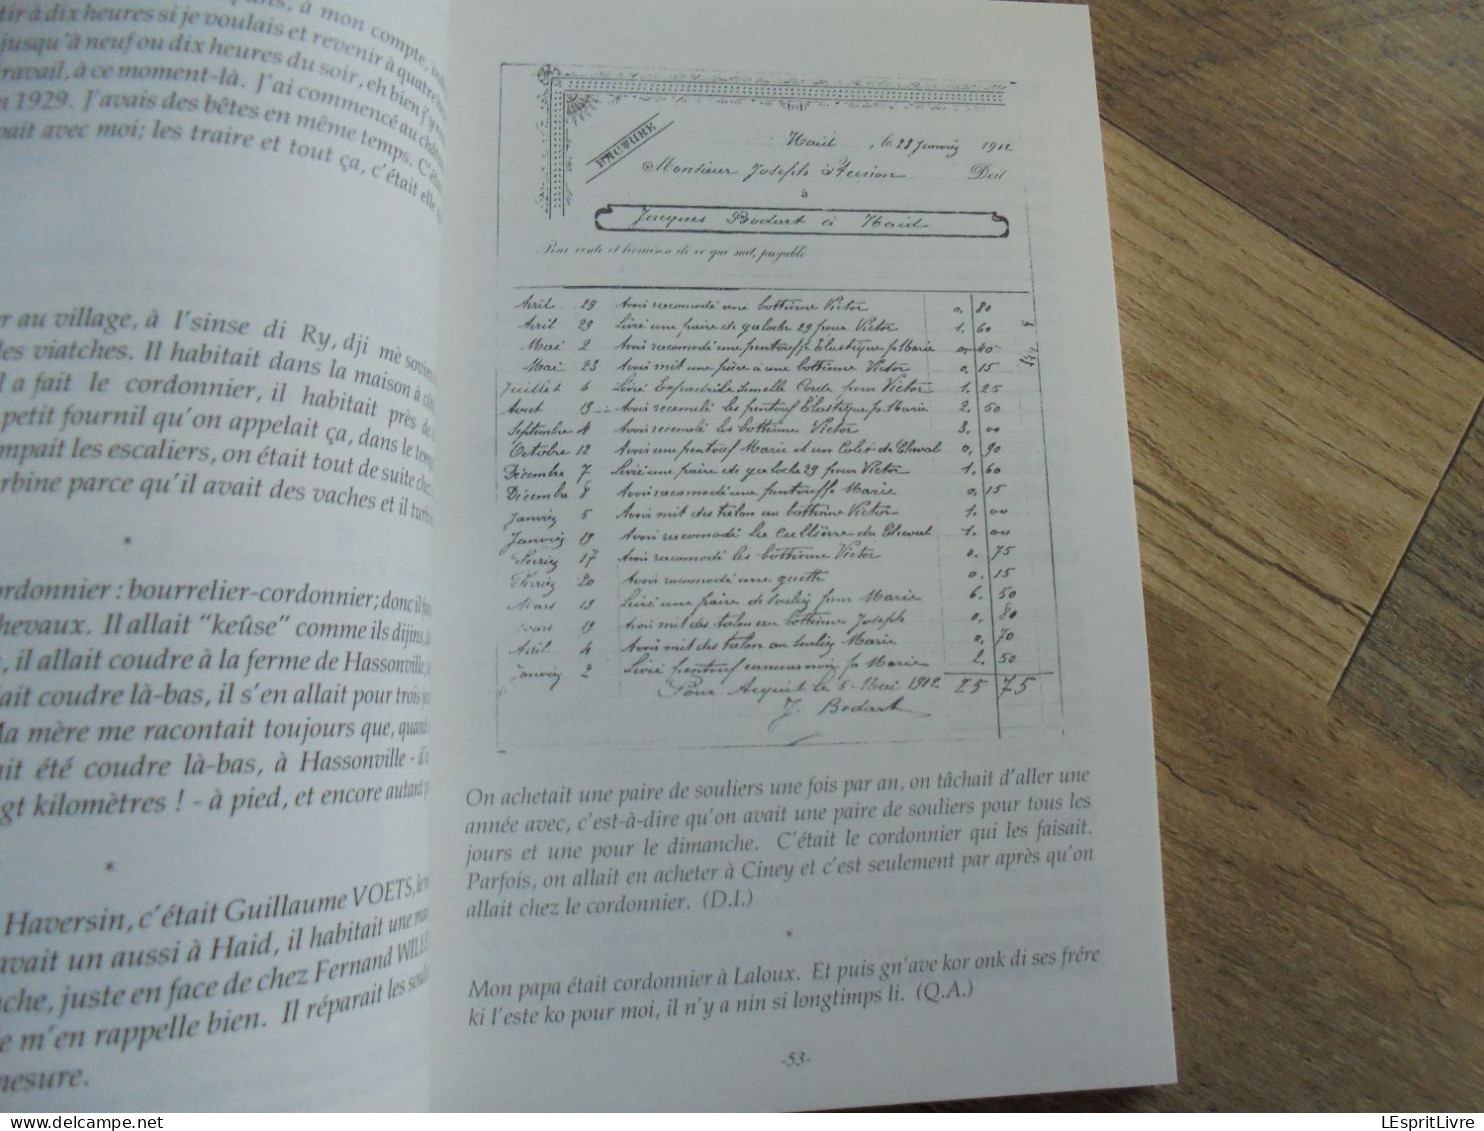 à mon compte,
tir à dix heures si je voulais et revenir à quatre
jusqu'à neuf ou dix heures du soir, eh bien j'y
ravail, à ce moment-là. J'ai commencé au
n 1929. J'avais des bêtes en même temps. C'était
pait avec moi; les traire et tout ça, c'était elle
er au village, à l'sinse di Ry, dji mè sovien
les viatches. Il habitait dans la maison à
l a fait le cordonnier, il habitait près de
petit fournil qu'on appelait ça, dans le temps
mpait les escaliers, on était tout de suite chez
rbine parce qu'il avait des vaches et il
*
ordonnier : bourrelier-cordonnier; donc il
hevaux. Il allait "keûse" comme ils dijins,
, il allait coudre à la ferme de Hassonville,
lait coudre là-bas, il s'en allait pour trois
Ma mère me racontait toujours que, quand
ait été coudre là-bas, à Hassonville -
gt kilomètres ! - à pied, et encore autant
*
Haversin, c'était Guillaume VOETS,
avait un aussi à Haid, il habitait une
che, juste en face de chez Fernand
e m'en rappelle bien. Il réparait les
mesure.
FACTURE
Haid, le 28 Janvier 1912
Monsieur Joseph Doit
à
Jacques Bodart à Haid
Pour vente et livraison de ce qui suit, payable
Avril 29 Avoir racomodé une bottinne Victor 0, 80
Avril 29 Livré une paire de galoche 29 pour Victor 1, 60
Mai 2 Avoir racomodé une pentouffe Elastique pr Marie 0, 40
Mai 23 Avoir mit une pièce a une bottinne Victor 0, 15
Juilliet 6 Livré Expadrile Semelle Corde pour Victor 1, 25
Avout 19 Avoir recemelé les pentouf Elastique pr Marie 2, 50
Septembre 4 Avoir recemelé les bottinne Victor 3, 00
Octobre 12 Avoir une pentouf Marie et un Colet de Cheval 0, 90
Décembre 7 Livré une paire de galoche 29 pour Victor 1, 60
Décembre 8 Avoir racomodé une pentouffe Marie 0, 15
Janvier 5 Avoir mit des talon au bottinne Victor 1, 00
Janvier 19 Avoir racomodé la cullière du Cheval 1, 00
Février 17 Avoir racomodé les bottinne Victor 0, 75
Février 20 Avoir racomodé une guette 0, 15
Mars 19 Livré une paire de Soulier pour Marie 6, 50
Mars 19 Avoir mit des talon au bottinne Joseph 0, 80
Avril 4 Avoir mit des talon au Soulier Marie 0, 70
Janvier 2 Livré pentouf pr Marie 2, 50
Pour Acquit le 5 Mai 1912 25 75
J. Bodart
On achetait une paire de souliers une fois par an, on tâchait d'aller une
année avec, c'est-à-dire qu'on avait une paire de souliers pour tous les
jours et une pour le dimanche. C'était le cordonnier qui les faisait.
Parfois, on allait en acheter à Ciney et c'est seulement par après qu'on
allait chez le cordonnier. (D.I.)
*
Mon papa était cordonnier à Laloux. Et puis gn'ave kor onk di ses frére
ki l'este ko pour moi, il n'y a nin si longtimps li. (Q.A.)
-53-
LEspritLivre